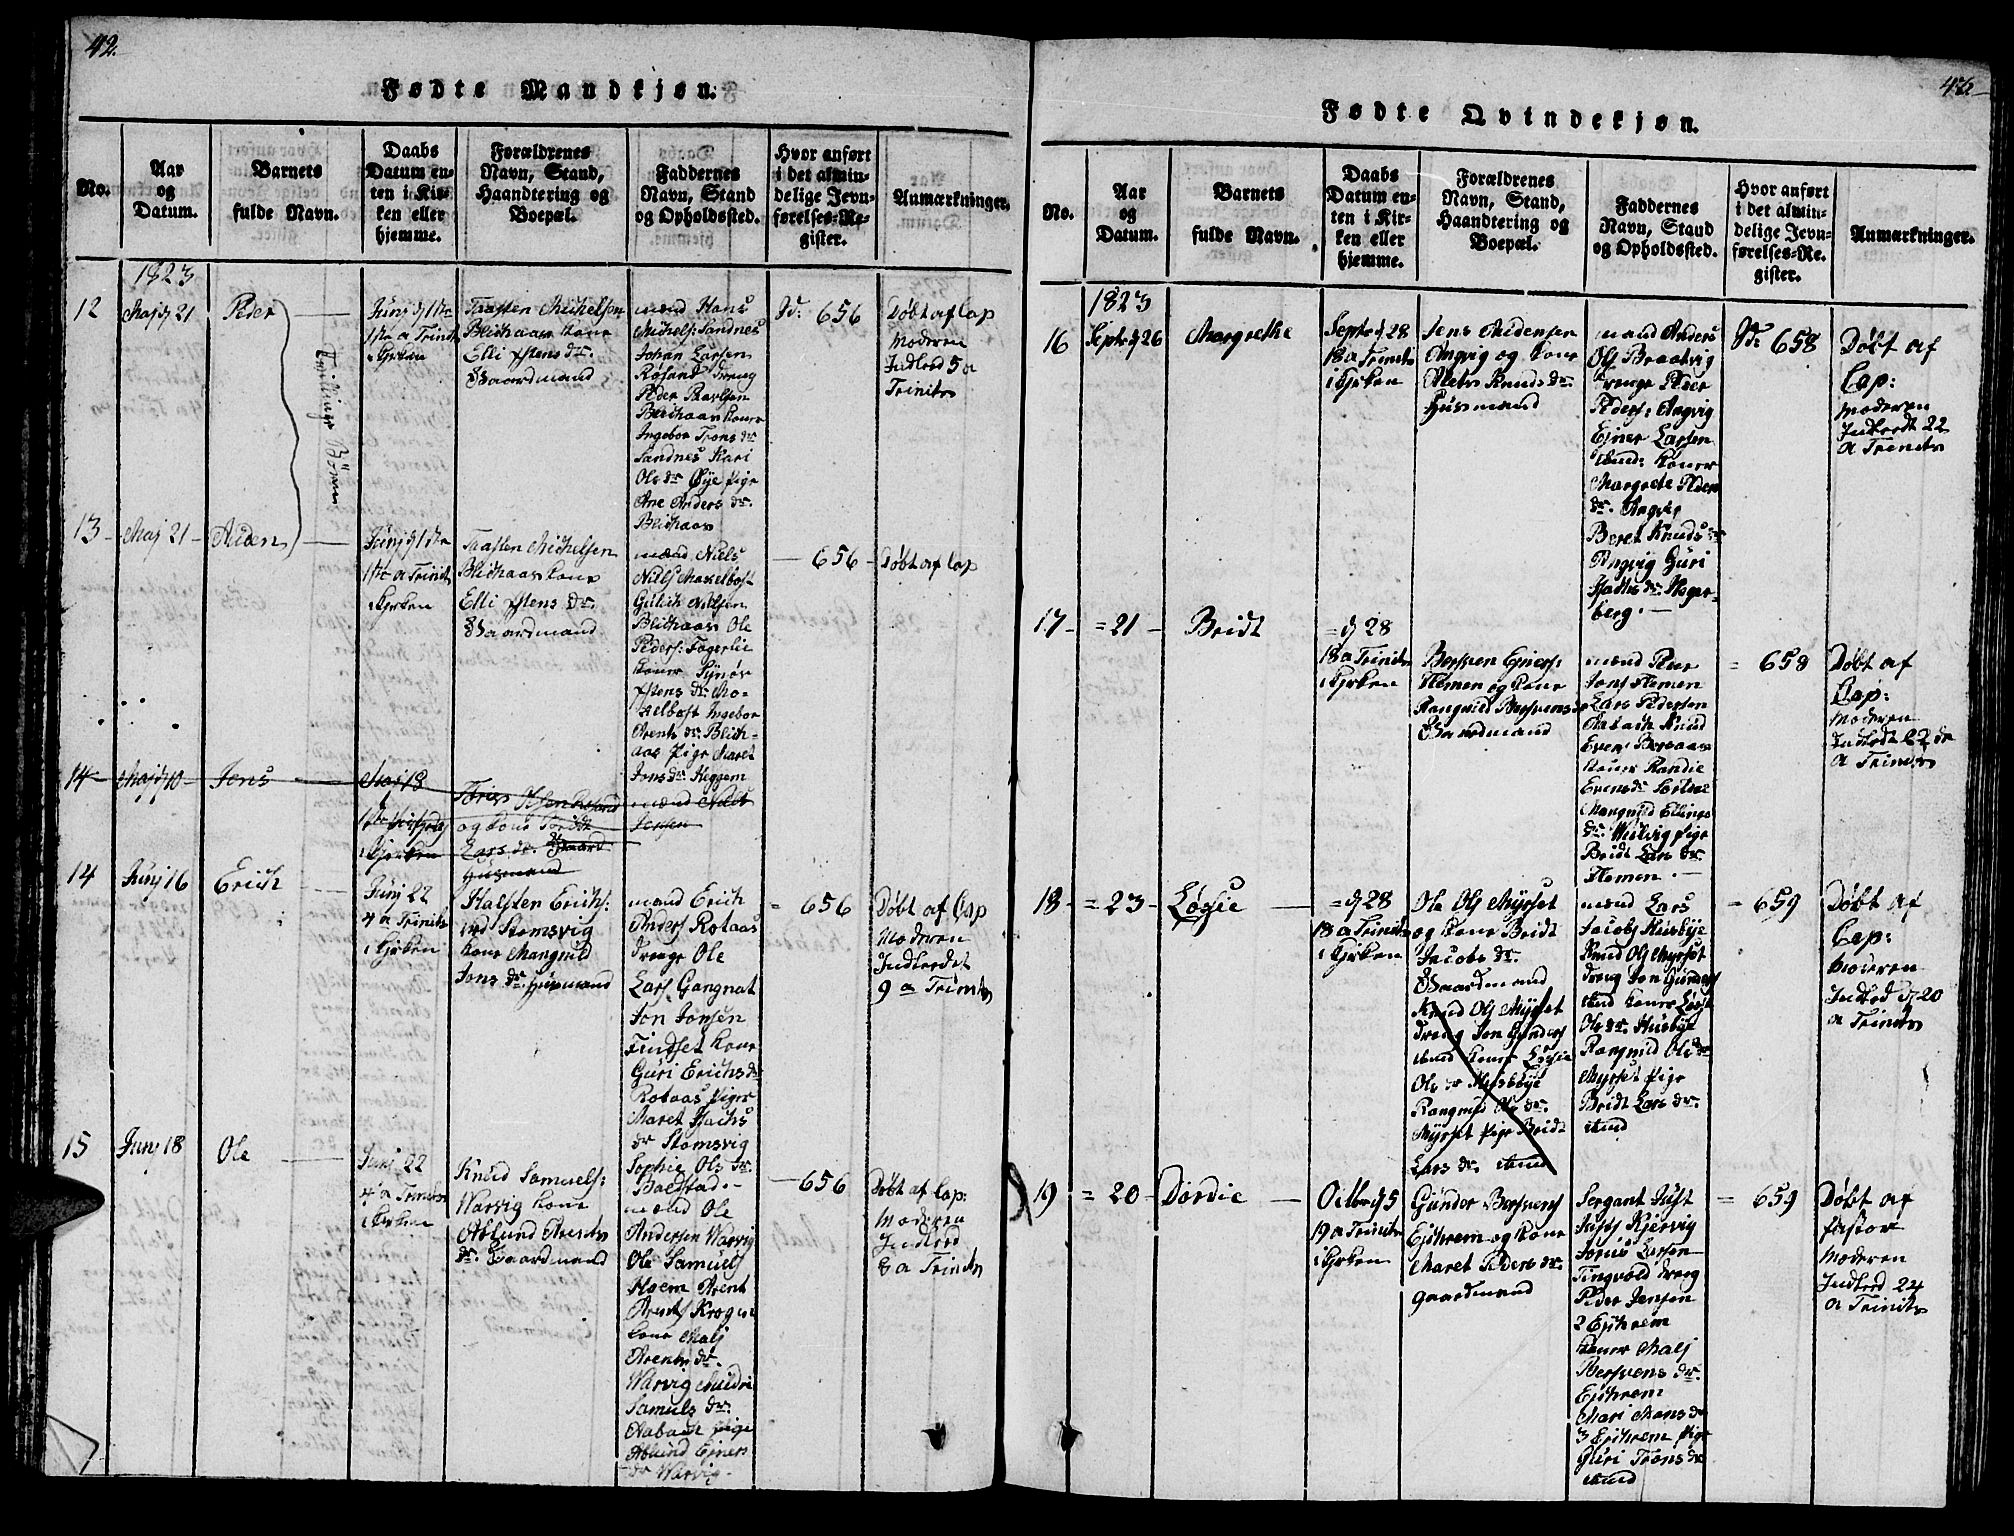 42.
Fødte Mandkjøn.
No.
Aar
og
Datum.
Barnets
fulde Navn.
Daabs
Datum en-
ten i Kir-
ken eller
hjemme.
Forældrenes
Navn, Stand,
Haandtering og
Boepæl.
Faddernes
Navn, Stand
og Opholdssted.
Hvor anført
i det almin-
delige Jevn-
førelses-Re-
gister.
Anmærkninger.
1823
12
Maj d 21
Peder
Tvillinge Børn
Junj d 1ste
1ste a Trinit
i Kjrken
Taasten Michelsen
Blichaas kone
Elli Istens dr.
Gaardmand
mænd Hans
Michels: Sandnes
Johan Larsen
Røsand dreng
Peder Paavlsen
Blichaas kone
Ingebor Trons dr
Sandnes Kari
Ols dr Øye pige
Ane Anders dr.
Blichaas
No: 656
Døbt af Cap
Moderen
Indled 5 a
Trinits
13
Maj 21
Auden
Junj d 1ste
1ste a Trinit
i Kjrken
Taasten Michelsen
Blichaas kone
Elli Istens dr.
Gaardmand
mænd Niels
Niels Maxelbost
Gulich Nilsen
Blichaas Ole
Peders: Fagerlie
koner Synøv
Istens dr. Mo-
xelbost Ingebor
Arents dr. Blich-
aas Pige Maret
Jons dr. Heggem
656
Døbt af Cap
14
Maj d 10
Jens
Maj 18
i Kjrken
og kone
Lars dr. Gaard
Husmand
mænd Niels
Jensen
14
Junj 16
Erich
Junj 22
4 a Trinits
i Kjrken
Halsten Erichs:
ved Stomsvig
kone Mangnild
Jons dr. Husmand
mænd Erich
Anders Rotaas
drenge Ole
Lars Gangnat
Jon Jonsen
Findset kone
Guri Erichs dr
Rotaas piger
Maret Isachs
dr Stomsvig
Sophie Ols dr.
Boedstad.-
= 656
Døbt af Cap
Moderen
Indledet
9 a Trinits
15
Junj 18
Ole
Junj 22
4 a Trinits
i Kjrken
Knud Samuels:
Warvig kone
Ablund Arents
dr. Gaardmand
mænd Ole
Andersen Warvig
Ole Samuels
Hoem Arent
Arents Krogen
kone Malj
Arents dr.
Warvig Mildri
Samuls dr.
Aabach pige
Ablund Ejners
dr Warvig.
656
Døbt af Cap:
Moderen
Indled
8 a Trinits
46
Fødte Qvindekjøn.
No.
Aar
og
Datum.
Barnets
fulde Navn.
Daabs
Datum en-
ten i Kir-
ken eller
hjemme.
Forældrenes
Navn, Stand,
Haandtering og
Boepæl.
Faddernes
Navn, Stand
og Opholdssted.
Hvor anført
i det almin-
delige Jevn-
førelses-Re-
gister.
Anmærkninger.
1823
16
Septr d 26
Margrethe
Septr d 28
18 a Trinits
i Kjrken
Jens Audensen
Angvig og kone
Knuds dr.
Husmand
mænd Anders
Ols Braatvig
drenge Peder
Peders: Angvig
Ejner Larsen
ibmd: koner
Margrete Peders
dr. Angvig
Beret Knuds dr
Angvig Guri
dr. Hoger-
berg.
No 658
Døbt af
Cap:
Moderen
Indledt 22
a Trinits
17
= 21
Bridt
= d 28
18 a Trinits
i Kjrken
Bersven Ejners:
Flemen og kone
Rangnild Bersvens dr
Gaardmand
mænd Peder
Jons Flemen
Lars Pedersen
Aabach Knud
Evens Bersaas
koner Randie
Evens dr.
Mangnild Ellings
dr. pige
Bridt Lars dr.
Flemen.
= 658
Døbt af
Cap:
Moderen
Indledt 22 de
a Trinits
18
= 23
Løsie
= d 28
18 a Trinits
i Kjrken
Ole Ols Myrset
og kone Bridt
Jacobs dr.
Gaardmand
Knud Ols Myrset
dreng Jon Gunders
ibmd koner Løsie
Ols dr Husbye
Rangnild Ols dr.
Myrset pige Bridt
Lars dr. ibmd
mænd Lars
Jacobs Husbye
Knud Ols Myrset
dreng Jon Gunders
ibmd koner Løsie
Ols dr. Husbye
Rangnild Ols dr
Myrset pige
Bridt Lars dr.
ibmd
= 659
Døbt af
Cap:
Moderen
Indled d 20
a Trinits
19
= 20
Dordie
Octbr d 5
19 a Trinits
i Kjrken
Gunder Bersvens
Ejkrem og kone
Maret Peders dr.
gaardmand
Sergant Just
Justs Kjervig
Jonis Larsen
Tingvold dreng
Peder Jensen
2 Ejkrem
koner Malj
Bersvens dr.
Ejkrem
Mari Mons dr
3 Ejkrem pige
Guri Trons dr
ibmd
= 659
Døbt af
Pastor
Moderen
Indled 24
a Trinits